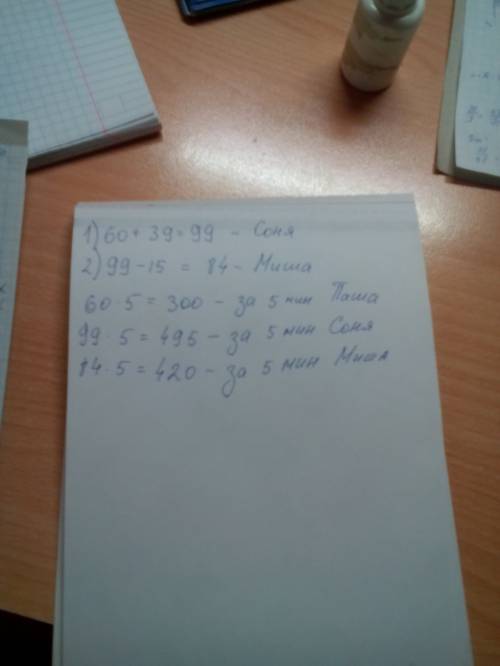 1) 60 + 39 = 99 - Соня
2) 99 - 15 = 84 - Миша
60 · 5 = 300 - за 5 мин Паша
99 · 5 = 495 - за 5 мин Соня
84 · 5 = 420 - за 5 мин Миша